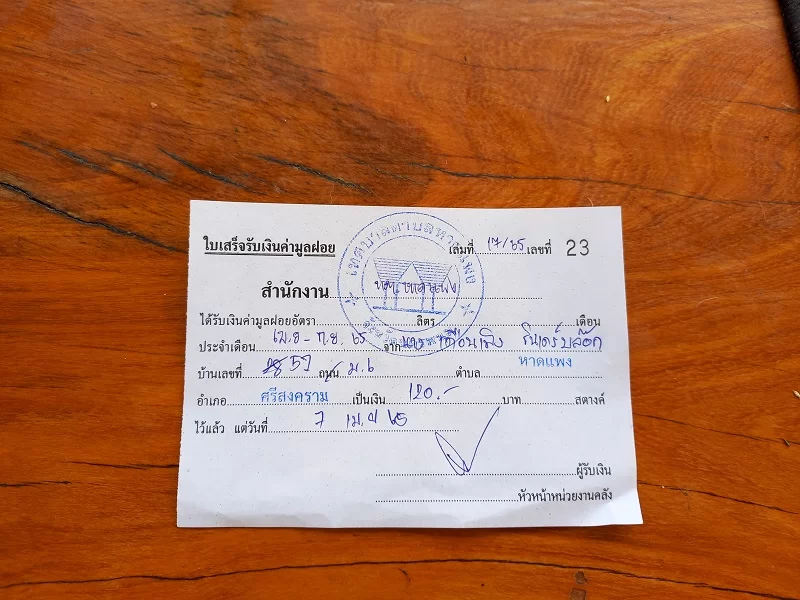 ใบเสร็จรับเงินค่ามูลฝอย เล่มที่ 17/65 เลขที่ 23
สำนักงาน
ได้รับเงินค่ามูลฝอยอัตรา ลิตร เดือน
ประจำเดือน เม.ย - ก.ย. 65 จาก นาง
บ้านเลขที่ ถนน ม.6 ตำบล หาดแพง
อำเภอ ศรีสงคราม เป็นเงิน 120.- บาท สตางค์
ไว้แล้ว แต่วันที่ 7 เม.ย 65
ผู้รับเงิน
หัวหน้าหน่วยงานคลัง